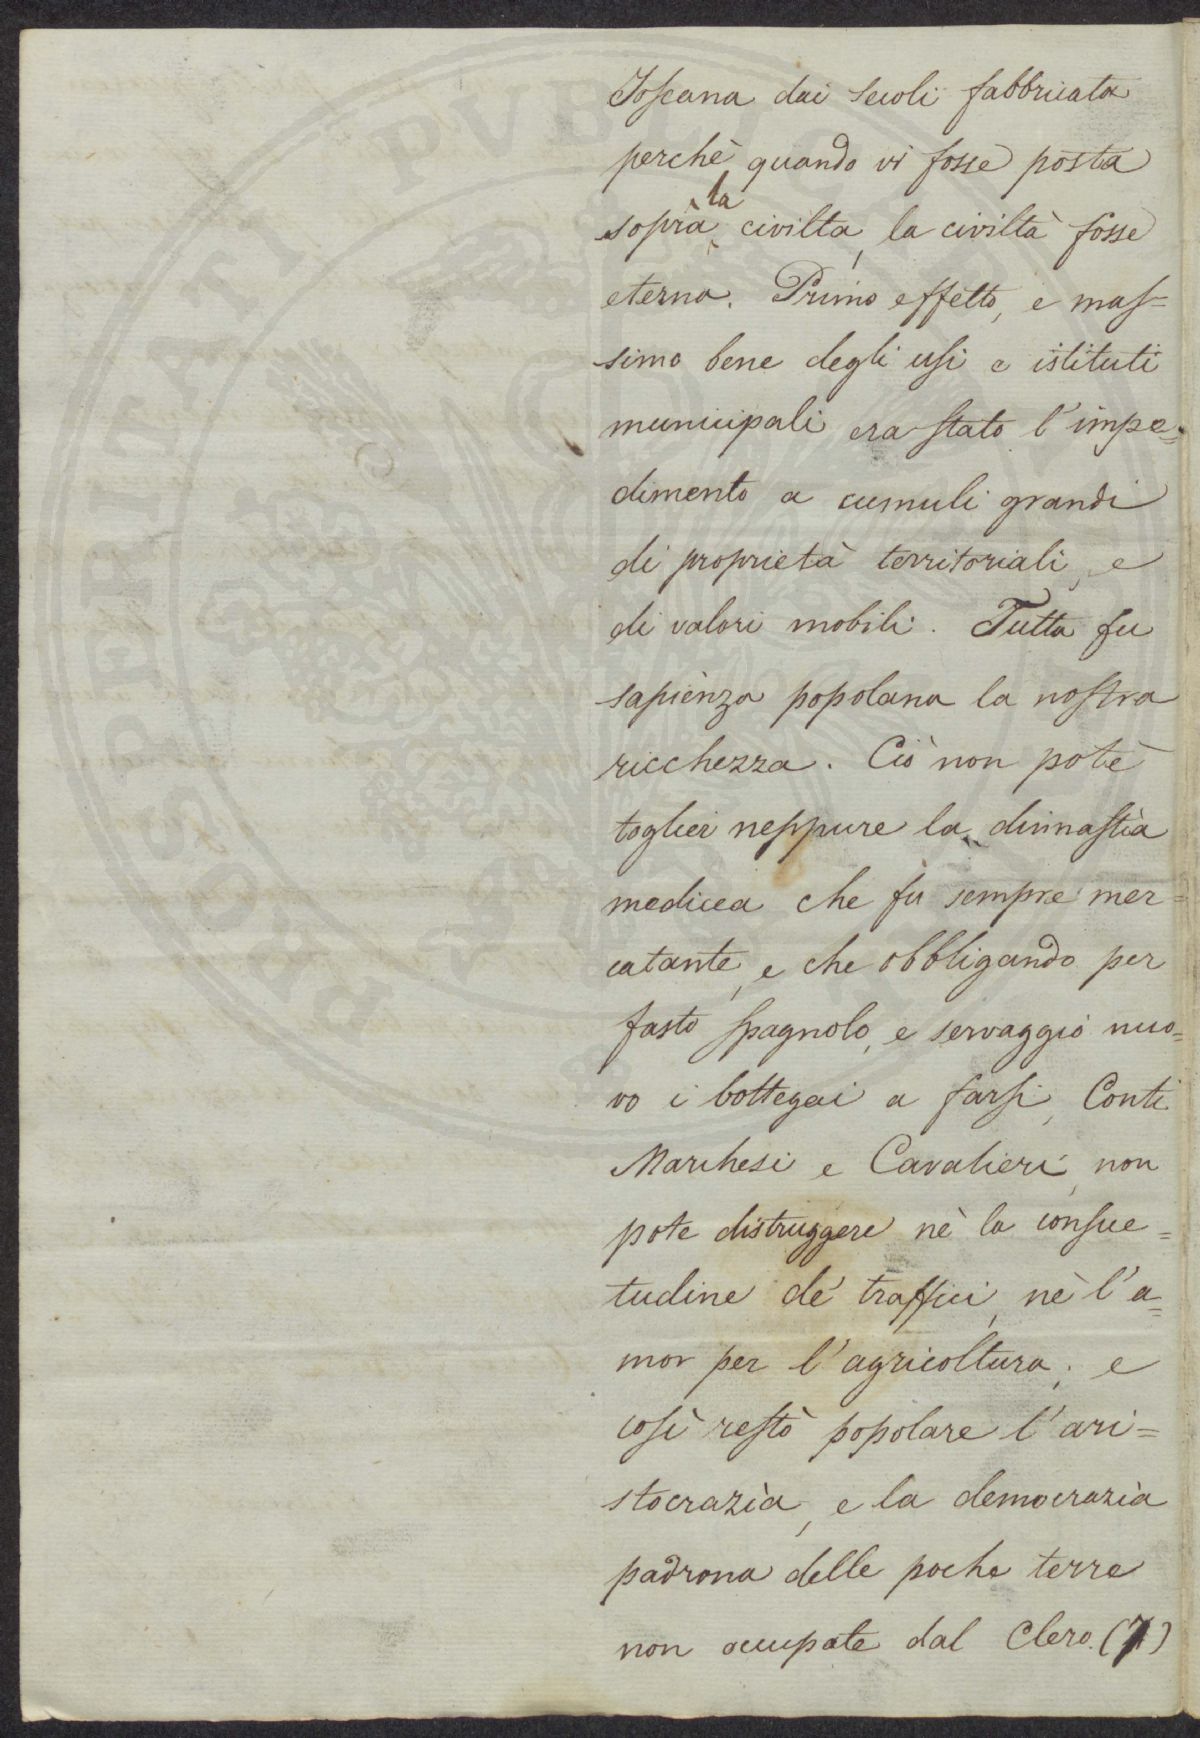 Toscana dai secoli fabbricata
perchè quando vi fosse posta
sopra la civilta, la civiltà fosse
eterna. Primo effetto, e mas=
simo bene degli usi e istituti
municipali era stato l'impe=
dimento a cumuli grandi
di proprietà territoriali, e
di valori mobili. Tutta fu
sapienza popolana la nostra
ricchezza. Ciò non potè
toglier neppure la dinnastia
medicea che fu sempre mer=
catante, e che obbligando per
fasto spagnolo, e servaggio nuo=
vo i bottegai a farsi, Conti
Marchesi e Cavalieri, non
pote distruggere nè la consue=
tudine de' traffici, nè l'a=
mor per l'agricoltura; e
così restò popolare l'ari=
stocrazìa, e la democrazia
padrona delle poche terre
non occupate dal Clero. (7)